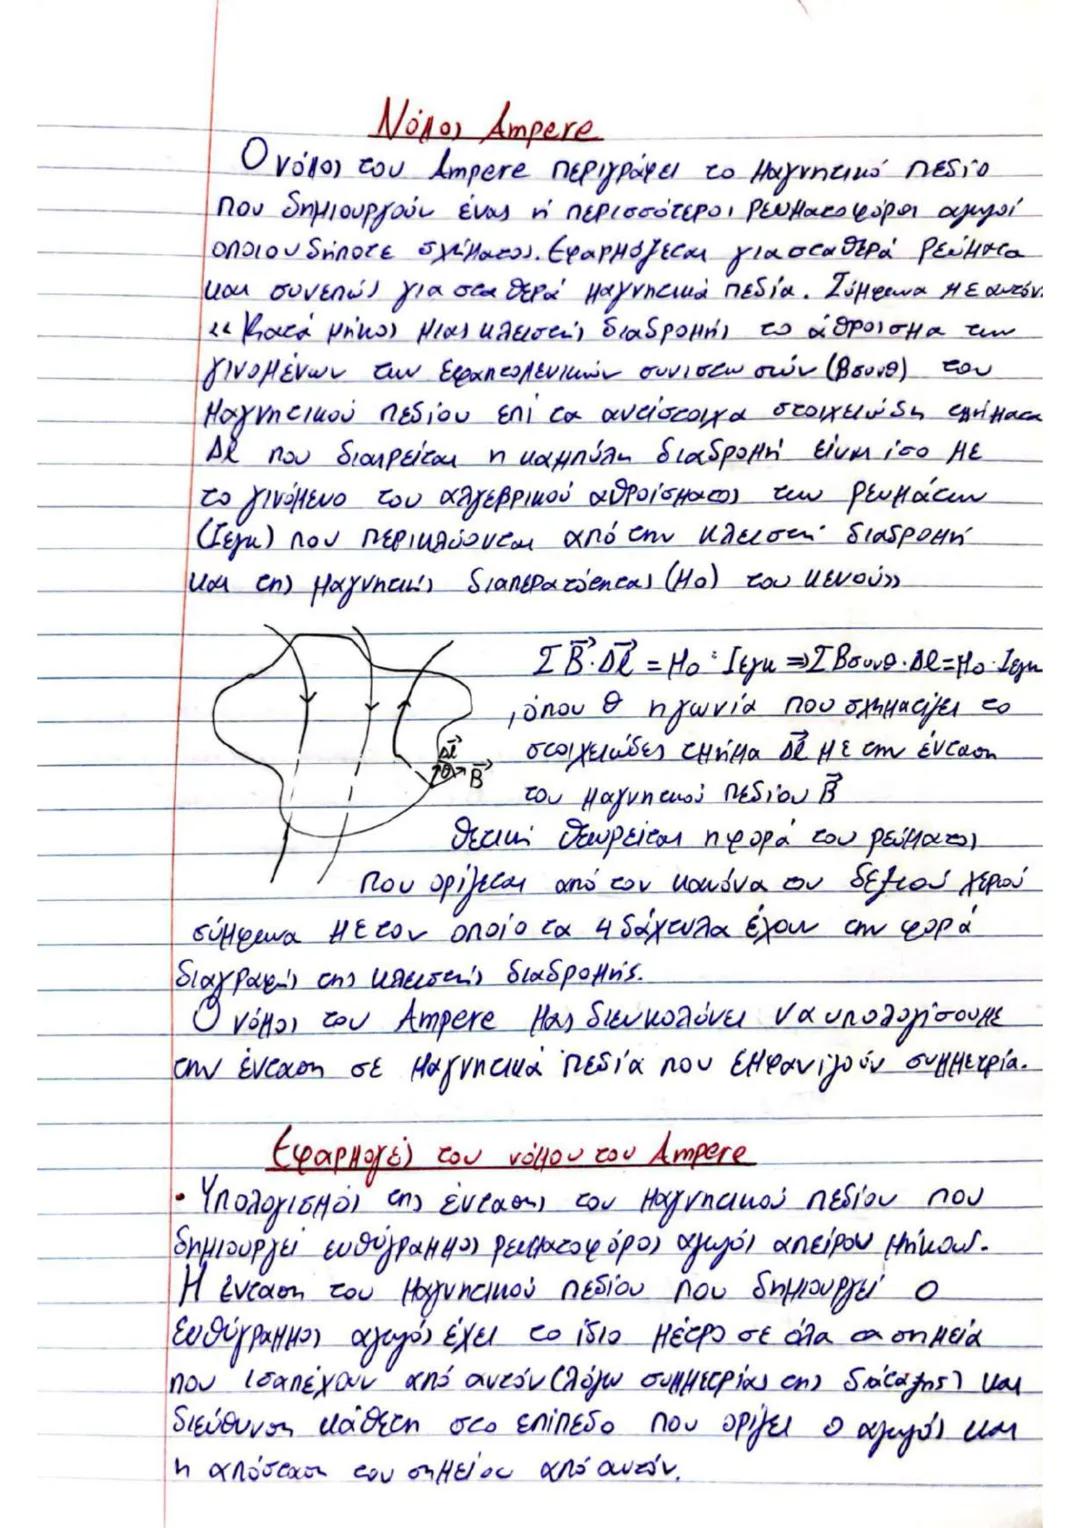 Νόμος Ampere
Ο νόμος του Ampere περιγράφει το μαγνητικό πεδίο
που δημιουργούν ένας ή περισσότεροι ρευματοφόροι αγωγοί
οποιουδήποτε σχήματος. Εφαρμόζεται για σταθερά ρεύματα
και συνεπώς για σταθερά μαγνητικά πεδία. Σύμφωνα με αυτόν:
«Κατά μήκος μιας κλειστής διαδρομής το άθροισμα των
γινομένων των εφαπτομενικών συνιστωσών (Βσυνθ) του
μαγνητικού πεδίου επί τα αντίστοιχα στοιχειώδη τμήματα
Δl που διαιρείται η καμπύλη διαδρομή είναι ίσο με
το γινόμενο του αλγεβρικού αθροίσματος των ρευμάτων
(Ιεγκ) που περικλείονται από την κλειστή διαδρομή
και της μαγνητικής διαπερατότητας (μο) του κενού»
Σ B⃗·Δl⃗ = μο·Ιεγκ ⇒ Σ Βσυνθ·Δl = μο·Ιεγκ
, όπου θ η γωνία που σχηματίζει το
στοιχειώδες τμήμα Δl⃗ με την ένταση
του μαγνητικού πεδίου B⃗
Δl⃗
θ B⃗
Θετική θεωρείται η φορά του ρεύματος
που ορίζεται από τον κανόνα του δεξιού χεριού
σύμφωνα με τον οποίο τα 4 δάχτυλα έχουν την φορά
διαγραφής της κλειστής διαδρομής.
Ο νόμος του Ampere μας διευκολύνει να υπολογίσουμε
την ένταση σε μαγνητικά πεδία που εμφανίζουν συμμετρία.
Εφαρμογές του νόμου του Ampere
• Υπολογισμός της έντασης του μαγνητικού πεδίου που
δημιουργεί ευθύγραμμος ρευματοφόρος αγωγός απείρου μήκους.
Η ένταση του μαγνητικού πεδίου που δημιουργεί ο
ευθύγραμμος αγωγός έχει το ίδιο μέτρο σε όλα τα σημεία
που ισαπέχουν από αυτόν (λόγω συμμετρίας της διάταξης) και
διεύθυνση κάθετη στο επίπεδο που ορίζει ο αγωγός και
η απόσταση του σημείου από αυτόν.